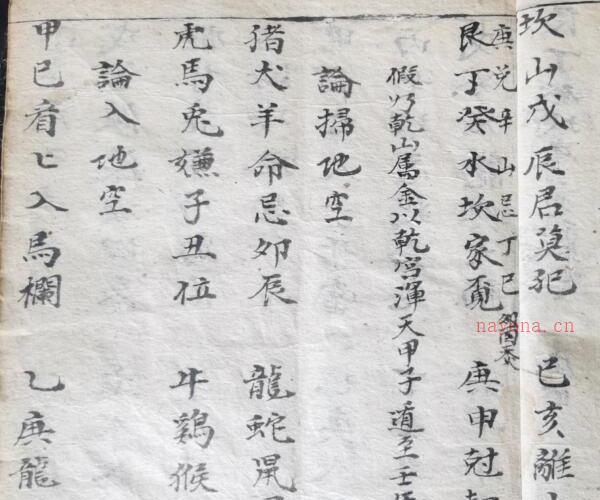 坎山戊辰君莫犯 己亥離
庚兌辛山忌丁巳
艮丁癸水坎家
庚申
假以乾山属金以乾宫渾天甲子遁至壬
論掃地空
猪犬羊命忌夘辰 龍蛇鼠
虎馬兎嫌子丑位 牛鷄猴
論入地空
甲巳看匕入馬欄 乙庚龍
nayona.cn